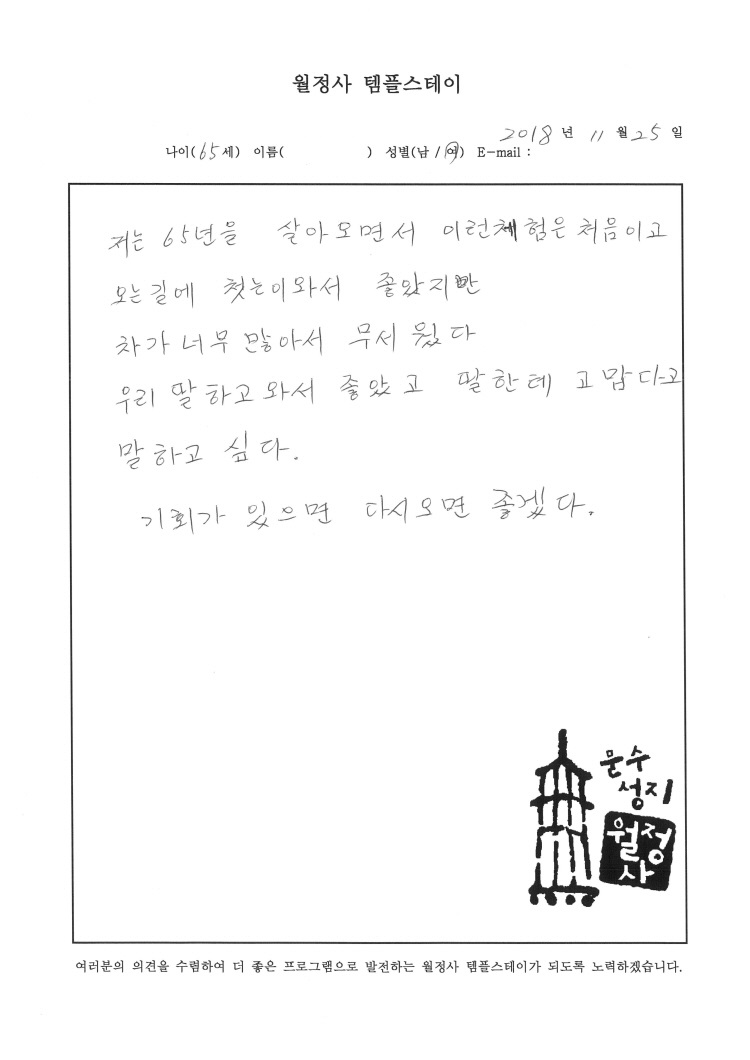 월정사 템플스테이
2018 년 11 월 25 일
나이(65세) 이름( ) 성별(남 / 여) E-mail :
저는 65년을 살아오면서 이런체험은 처음이고
오는길에 첫눈이와서 좋았지만
차가 너무 많아서 무서웠다
우리 딸하고와서 좋았고 딸한테 고맙다고
말하고 싶다.
기회가 있으면 다시오면 좋겠다.
문수
성지
월정
사
여러분의 의견을 수렴하여 더 좋은 프로그램으로 발전하는 월정사 템플스테이가 되도록 노력하겠습니다.